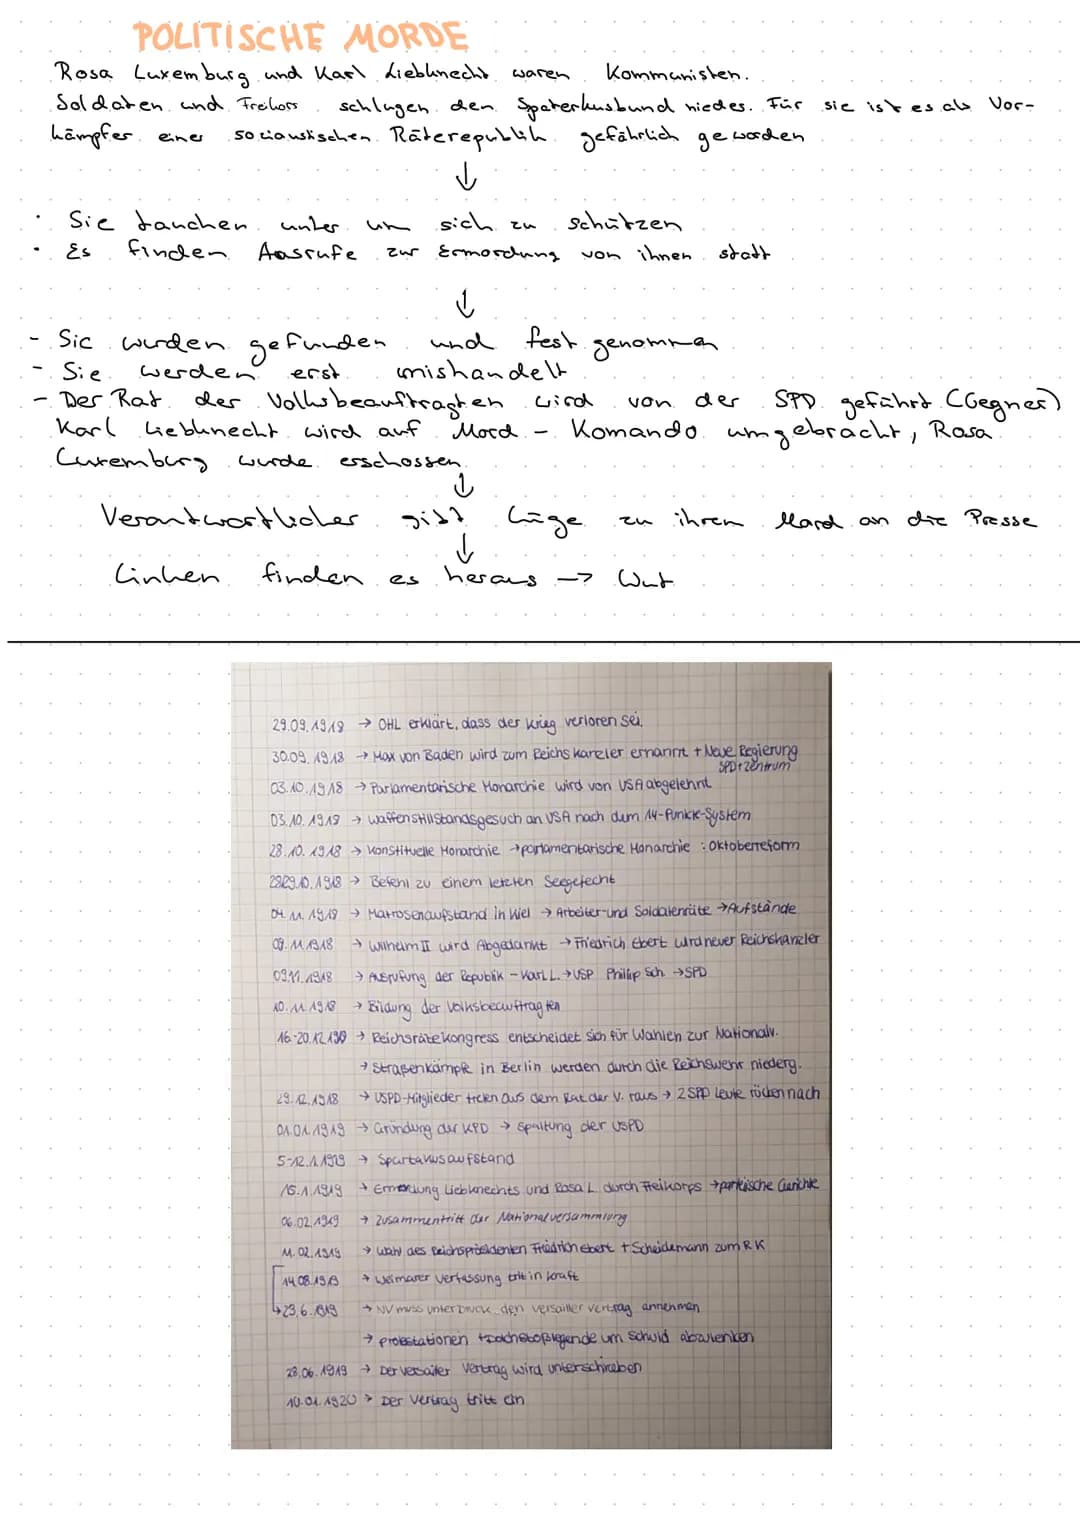 POLITISCHE MORDE
Rosa Luxemburg und Karl Liebknecht waren Kommunisten.
Soldaten und Freikors schlugen den Spaterkusbund nieder. Für sie ist es als Vor-
kämpfer einer soziaistischen Räterepublik gefährlich geworden
↓
• Sie tauchen unter um sich zu schützen
• Es finden Aasrufe zur Ermordung von ihnen statt
↓
- Sie wurden gefunden und fest genommen
- Sie werden erst mishandelt
- Der Rat der Volksbeauftragten wird von der SPD geführt (Gegner)
Karl Liebknecht wird auf Mord - Komando umgebracht, Rosa
Luxemburg wurde erschossen
↓
Verantwortlicher gibt Lüge zu ihrem Mord an die Presse
↓
Linken finden es heraus -> Wut
29.09.1918 → OHL erklärt, dass der Krieg verloren sei.
30.09.1918 → Max von Baden wird zum Reichskanzler ernannt + Neue Regierung
SPD+Zentrum
03.10.1918 → Parlamentarische Monarchie wird von USA abgelehnt
03.10.1918 → Waffenstillstandsgesuch an USA nach dem 14-Punkte-System
28.10.1918 → Konstituelle Monarchie → parlamentarische Monarchie : Oktoberreform
28/29.10.1918 → Befehl zu einem letzten Seegefecht
04.11.1918 → Matrosenaufstand in Kiel → Arbeiter-und Soldatenräte → Aufstände
09.11.1918 → Wilhelm II wird Abgedankt → Friedrich Ebert wird neuer Reichskanzler
09.11.1918 → Ausrufung der Republik - Karl L. → USP Philip Sch → SPD
10.11.1918 → Bildung der Volksbeauftragten
16-20.12.1918 → Reichsrätekongress entscheidet sich für Wahlen zur Nationalv.
→ Straßenkämpfe in Berlin werden durch die Reichswehr niederg.
29.12.1918 → USPD-Mitglieder treten aus dem Rat der V. raus → 2 SPD Leute rücken nach
01.01.1919 → Gründung der KPD → Spaltung der USPD
5-12.1.1919 → Spartakusaufstand
15.1.1919 → Ermordung Liebknechts und Rosa L. durch Freikorps → parteiische Gerichte
06.02.1919 → Zusammentritt der Nationalversammlung
11.02.1919 → Wahl des Reichspräsidenten Friedrich Ebert + Scheidemann zum RK
14.08.1919 → Weimarer Verfassung tritt in kraft
→ 23.6.1919 → NV muss unter Druck den versailler vertrag annehmen
→ protestationen + Dolchstoßlegende um Schuld abzulenken
28.06.1919 → Der Versailler Vertrag wird unterschrieben
10.01.1920 → Der Vertrag tritt ein